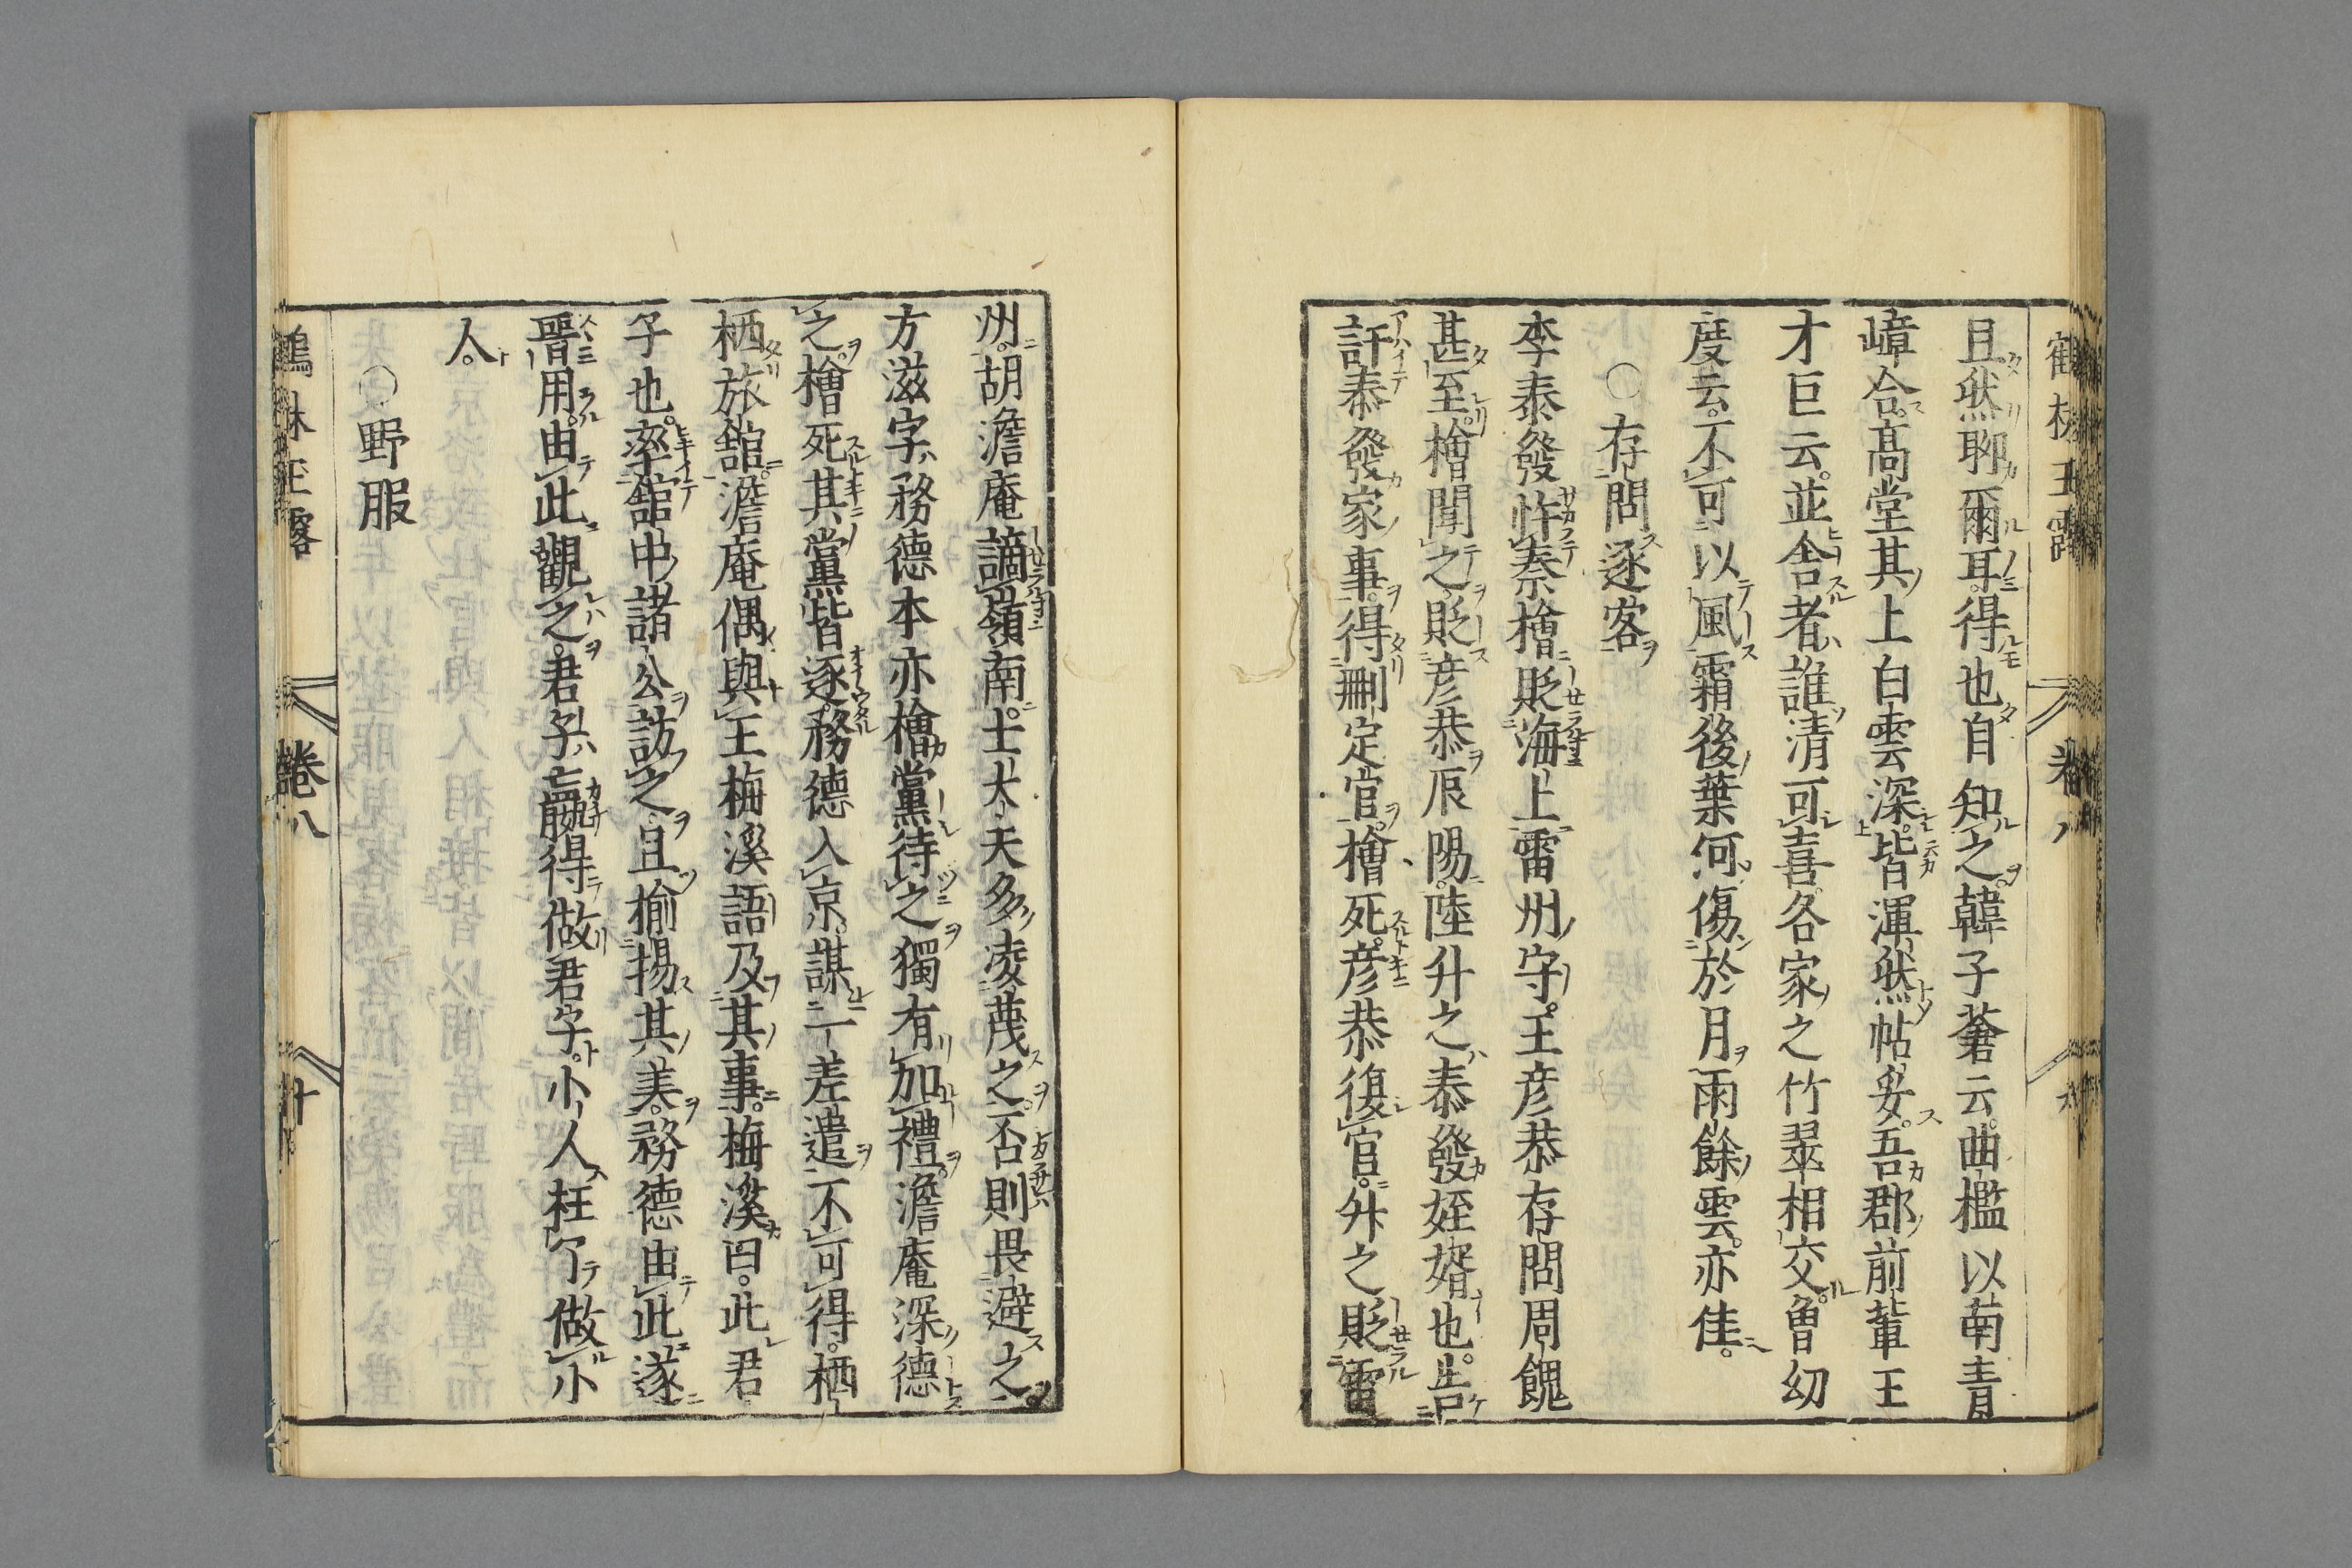 鶴林玉露 卷八
且然聊爾耳得也自知之韓子蒼云曲檻以南青
嶂合高堂其上白雲深皆渾然帖妥吾郡前輩王
才臣云並舍者誰清可喜各家之竹翠相交曾幼
度云不可以風霜後葉何傷於月雨餘雲亦佳
〇存問逐客
李泰發忤秦檜貶海上雷州守王彦恭存問周餽
甚至檜聞之貶彦恭辰陽陸升之泰發姪壻也告
訐泰發家事得刪定官檜死彦恭復官升之貶雷
州胡澹庵謫嶺南士大夫多凌蔑之否則畏避之
方滋字務德本亦檜黨待之獨有加禮澹庵深德
之檜死其黨皆逐務德入京謀一差遣不可得栖
栖旅舘澹庵偶與王梅溪語及其事梅溪曰此君
子也率舘中諸公訪之且揄揚其美務德由此遂
晋用由此觀之君子贏得做君子小人枉了做小
人
〇野服
鶴林玉露 卷八 十